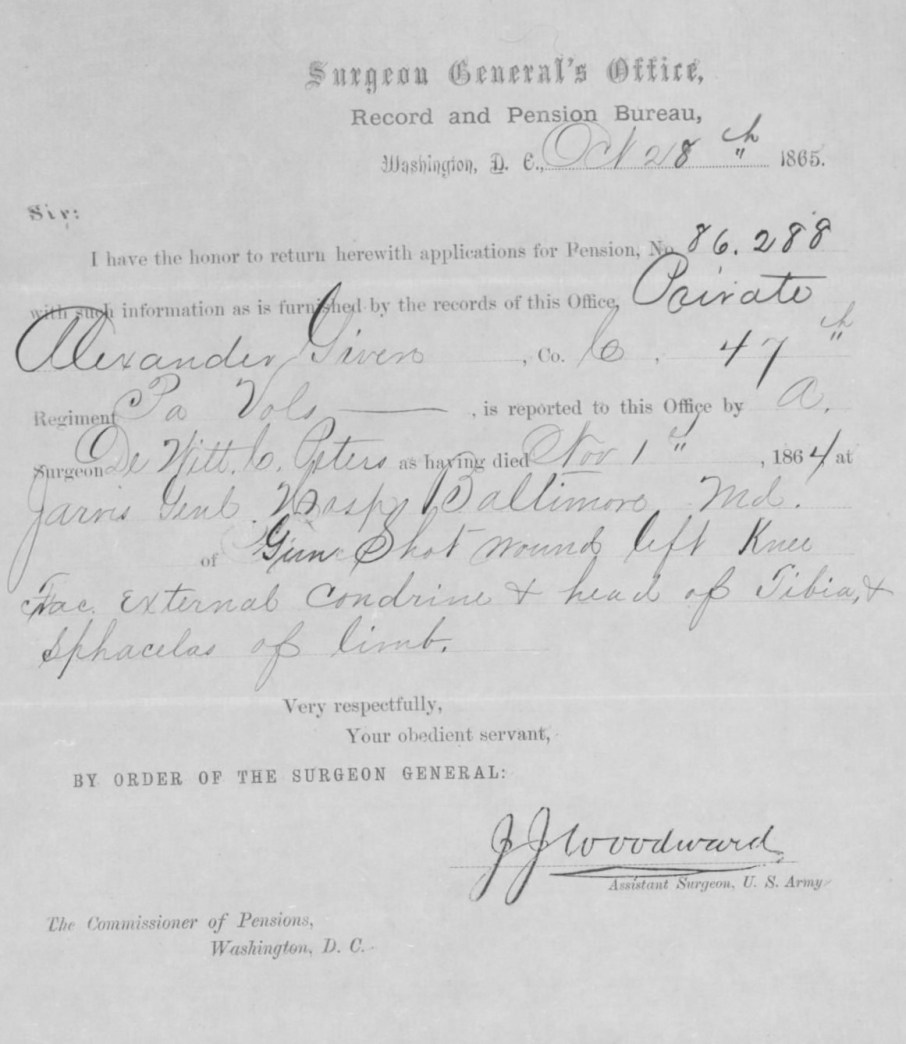 Surgeon General's Office,
Record and Pension Bureau,
Washington, D. C., Oct 28 th 1865.
Sir:
I have the honor to return herewith applications for Pension, No 86.288
with such information as is furnished by the records of this Office, Private
Alexander Given, Co. C, 47th
Regiment Pa Vols, is reported to this Office by A.
Surgeon De Witt. C. Peters as having died Nov 1 ", 1864 at
Jarvis Genl Hosp Baltimore Md.
of Gun Shot wound left Knee
Frac. External Condrine & head of Tibia, &
Sphacelas of limb.
Very respectfully,
Your obedient servant,
BY ORDER OF THE SURGEON GENERAL:
J J Woodward
Assistant Surgeon, U. S. Army
The Commissioner of Pensions,
Washington, D. C.